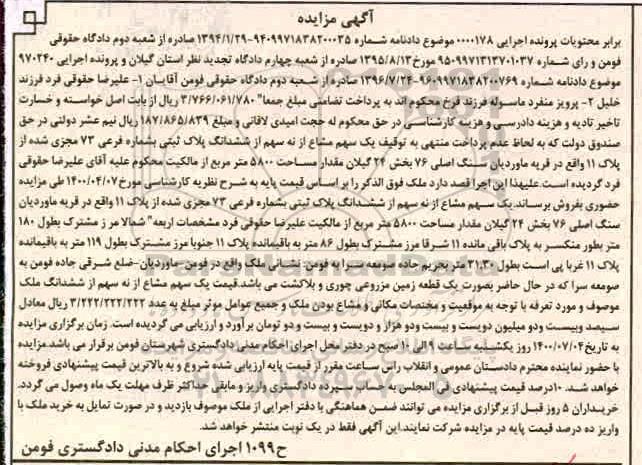 آگهی مزایده
برابر محتویات پرونده اجرایی ۰۰۰۰۱۷۸ موضوع دادنامه شماره ۹۴۰۹۹۷۱۸۳۸۲۰۰۰۳۵-۱۳۹۴/۱/۲۹ صادره از شعبه دوم دادگاه حقوقی
فومن و رای شماره ۹۵۰۹۹۷۱۳۱۳۷۰۱۰۳۷ مورخ ۱۳۹۵/۸/۱۳ صادره از شعبه چهارم دادگاه تجدید نظر استان گیلان و پرونده اجرایی ۹۷۰۲۴۰
موضوع دادنامه شماره ۹۶۰۹۹۷۱۸۳۸۲۰۰۷۶۹-۱۳۹۶/۷/۲۴ صادره از شعبه دوم دادگاه حقوقی فومن آقایان ۱- علیرضا حقوقی فرد فرزند
خلیل ۲- پرویز منفرد ماسوله فرزند فرخ محکوم اند به پرداخت تضامنی مبلغ جمعا" ۳/۷۶۶/۰۶۱/۷۸۰ ریال از بابت اصل خواسته و خسارت
تاخیر تادیه و هزینه دادرسی و هزینه کارشناسی در حق محکوم له حجت امیدی لاقانی و مبلغ ۱۸۷/۸۶۵/۸۳۹ ریال نیم عشر دولتی در حق
صندوق دولت که به لحاظ عدم پرداخت منتهی به توقیف یک سهم مشاع از نه سهم از ششدانگ پلاک ثبتی بشماره فرعی ۷۳ مجزی شده از
پلاک ۱۱ واقع در قریه ماوردیان سنگ اصلی ۷۶ بخش ۲۴ گیلان مقدار مساحت ۵۸۰۰ متر مربع از مالکیت محکوم علیه آقای علیرضا حقوقی
فرد گردیده است.علیهذا این اجرا قصد دارد ملک فوق الذکر را بر اساس قیمت پایه به شرح نظریه کارشناسی مورخ ۱۴۰۰/۰۴/۰۷ طی مزایده
حضوری بفروش برساند.یک سهم مشاع از نه سهم از ششدانگ پلاک ثبتی بشماره فرعی ۷۳ مجزی شده از پلاک ۱۱ واقع در قریه ماوردیان
سنگ اصلی ۷۶ بخش ۲۴ گیلان مقدار مساحت ۵۸۰۰ متر مربع از مالکیت علیرضا حقوقی فرد مشخصات اربعه" شمالا مر ز مشترک بطول ۱۸۰
متر بطور منکسر به پلاک باقی مانده ۱۱ شرقا مرز مشترک بطول ۸۶ متر به باقیمانده پلاک ۱۱ جنوبا مرز مشترک بطول ۱۱۹ متر به باقیمانده
پلاک ۱۱ غربا پی است بطول ۳۱،۳۰ متر بحریم جاده صومعه سرا به فومن- نشانی ملک واقع در فومن-ماوردیان-ضلع شرقی جاده فومن به
صومعه سرا که در حال حاضر بصورت یک قطعه زمین مزروعی چوری و بلاکشت می باشد.قیمت یک سهم مشاع از نه سهم از ششدانگ ملک
موصوف و مورد تعرفه با توجه به موقعیت و مختصات مکانی و مشاع بودن ملک و جمیع عوامل موثر مبلغ به عدد ۳/۲۲۲/۲۲۲/۲۲۲ ریال معادل
سیصد وبیست ودو میلیون دویست و بیست ودو هزار و دویست و بیست و دو تومان بر آورد و ارزیابی می گردیده است. زمان برگزاری مزایده
به تاریخ ۱۴۰۰/۰۷/۰۴ روز یکشنبه ساعت ۹ الی ۱۰ صبح در دفتر محل اجرای احکام مدنی دادگستری شهرستان فومن برقرار می باشد.مزایده
با حضور نماینده محترم دادستان عمومی و انقلاب راس ساعت مقرر از قیمت پایه ارزیابی شده شروع و به بالاترین قیمت پیشنهادی فروخته
خواهد شد. ۱۰درصد قیمت پیشنهادی فی المجلس به حساب سپرده دادگستری واریز و مابقی حداکثر ظرف مهلت یک ماه وصول می گردد.
خریداران ۵ روز قبل از برگزاری مزایده می توانند ضمن هماهنگی با دفتر اجرایی از ملک موصوف بازدید و در صورت تمایل به خرید ملک با
واریز ده درصد قیمت پایه در مزایده شرکت نمایند.این آگهی فقط در یک نوبت منتشر خواهد شد.
ح۱۰۹۹ اجرای احکام مدنی دادگستری فومن